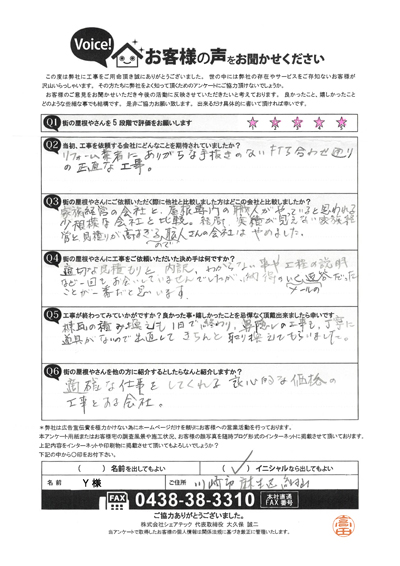 Voice!
お客様の声をお聞かせください
この度は弊社に工事をご用命頂き誠にありがとうございました。世の中には弊社の存在やサービスをご存知ないお客様が
沢山いらっしゃいます。その方たちに弊社をよく知って頂くためのアンケートにご協力頂けないでしょうか。
お客様のご意見をお聞かせいただき今後の活動に反映させていただきたいと考えております。良かったこと、嬉しかったこと
どのような些細な事でも結構です。是非ご協力お願い致します。出来るだけ具体的に書いて頂ければ幸いです。
Q1 街の屋根やさんを5段階で評価をお願いします
Q2 当初、工事を依頼する会社にどんなことを期待されていましたか?
リフォーム業者にありがちな手抜きのない打ち合わせ通り
の正直な工事。
Q3 街の屋根やさんにご依頼いただく際に他社と比較しました方はどこの会社と比較しましたか?
家族経営の会社と、屋根専門の職人がやっていると思われる
少規模な会社と比較。結局、実績が見えない家族経
営と見積りが高すぎる職人さんの会社はやめました。
ので
Q4 街の屋根やさんに工事をご依頼いただいた決め手は何ですか?
適切な見積もりと内訳、わからない事や工程の説明
など一回もお会いしていませんでしたが、納得のいく返答だった
メールの
ことが一番だと思います。
Q5 工事が終わってみていかがですか?良かった事・嬉しかったことを忌憚なく頂戴出来ましたら幸いです
棟瓦の積み替えも1日で終わり、
道具がないので出直して きちんと取り換えてもらいました。
Q6 街の屋根やさんを他の方に紹介するとしたらなんと紹介しますか?
適確な仕事をしてくれる良心的な価格の
工事をする会社。
*弊社は広告宣伝費を極力かけない為にホームページだけを頼りにお客様への営業活動を行っております。
本アンケート用紙またはお客様宅の調査風景や施工状況、お客様の顔写真を随時ブログ形式のインターネットに掲載させて頂いております。
上記内容をインターネットや印刷物に掲載させて頂いてもよろしいでしょうか?
下記の中から〇印をお付け下さい。
( )名前を出してもよい (✓)イニシャルなら出してもよい
名前 Y 様 ご住所 川崎市麻生区
FAX 0438-38-3310 本社直通 FAX番号
ご協力ありがとうございました。
株式会社シェアテック 代表取締役 大久保 誠二
※アンケートで取得したお客様の個人情報は関係法規に基づき厳正に管理いたします。